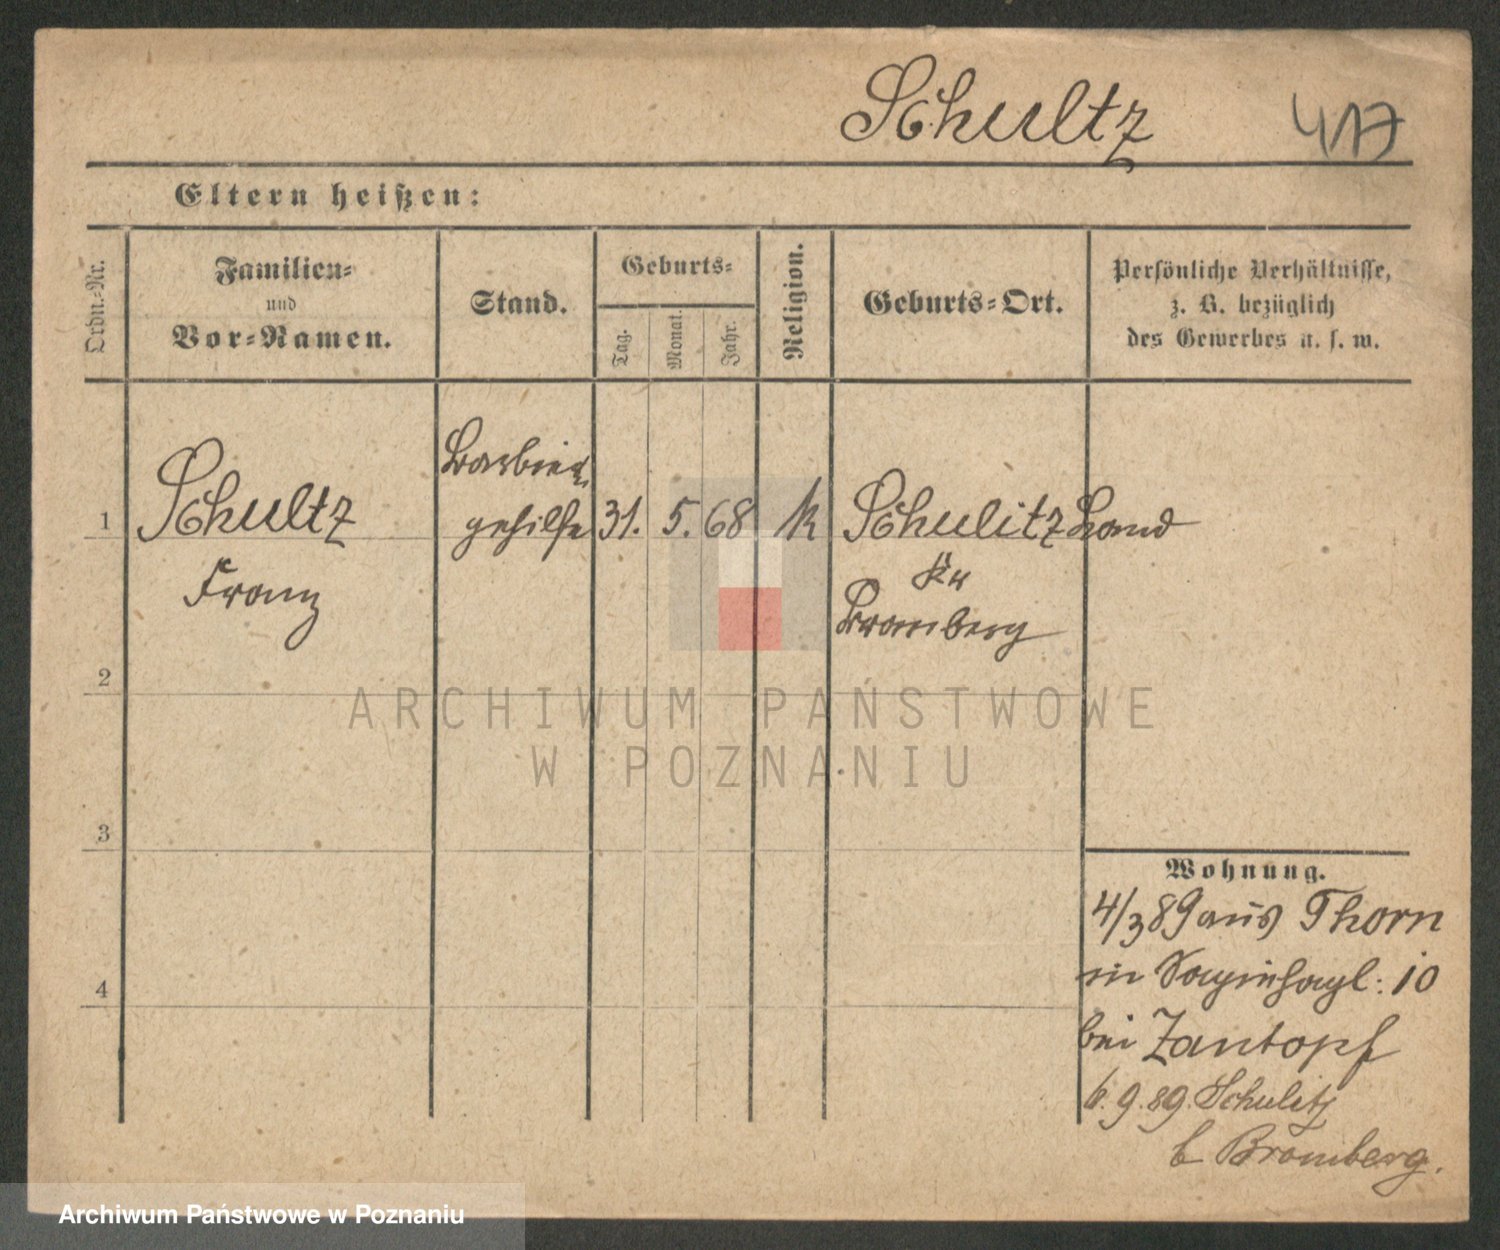 Schultz 417
Eltern heißen:
Ordn.-Nr.
Familien-
und
Vor-Namen.
Stand.
Geburts-
Tag.
Monat.
Jahr.
Religion.
Geburts-Ort.
Persönliche Verhältnisse,
z. B. bezüglich
des Gewerbes u. s. w.
1 Schultz
Franz
Barbier-
gehilfe
31. 5. 68 k
Schulitz Hand
Kr
Bromberg
2
3
4
Wohnung.
4/3 89 aus Thorn
10
bei Zantopf
6. 9. 89. Schulitz
b Bromberg.
ARCHIWUM PAŃSTWOWE
W POZNANIU
Archiwum Państwowe w Poznaniu